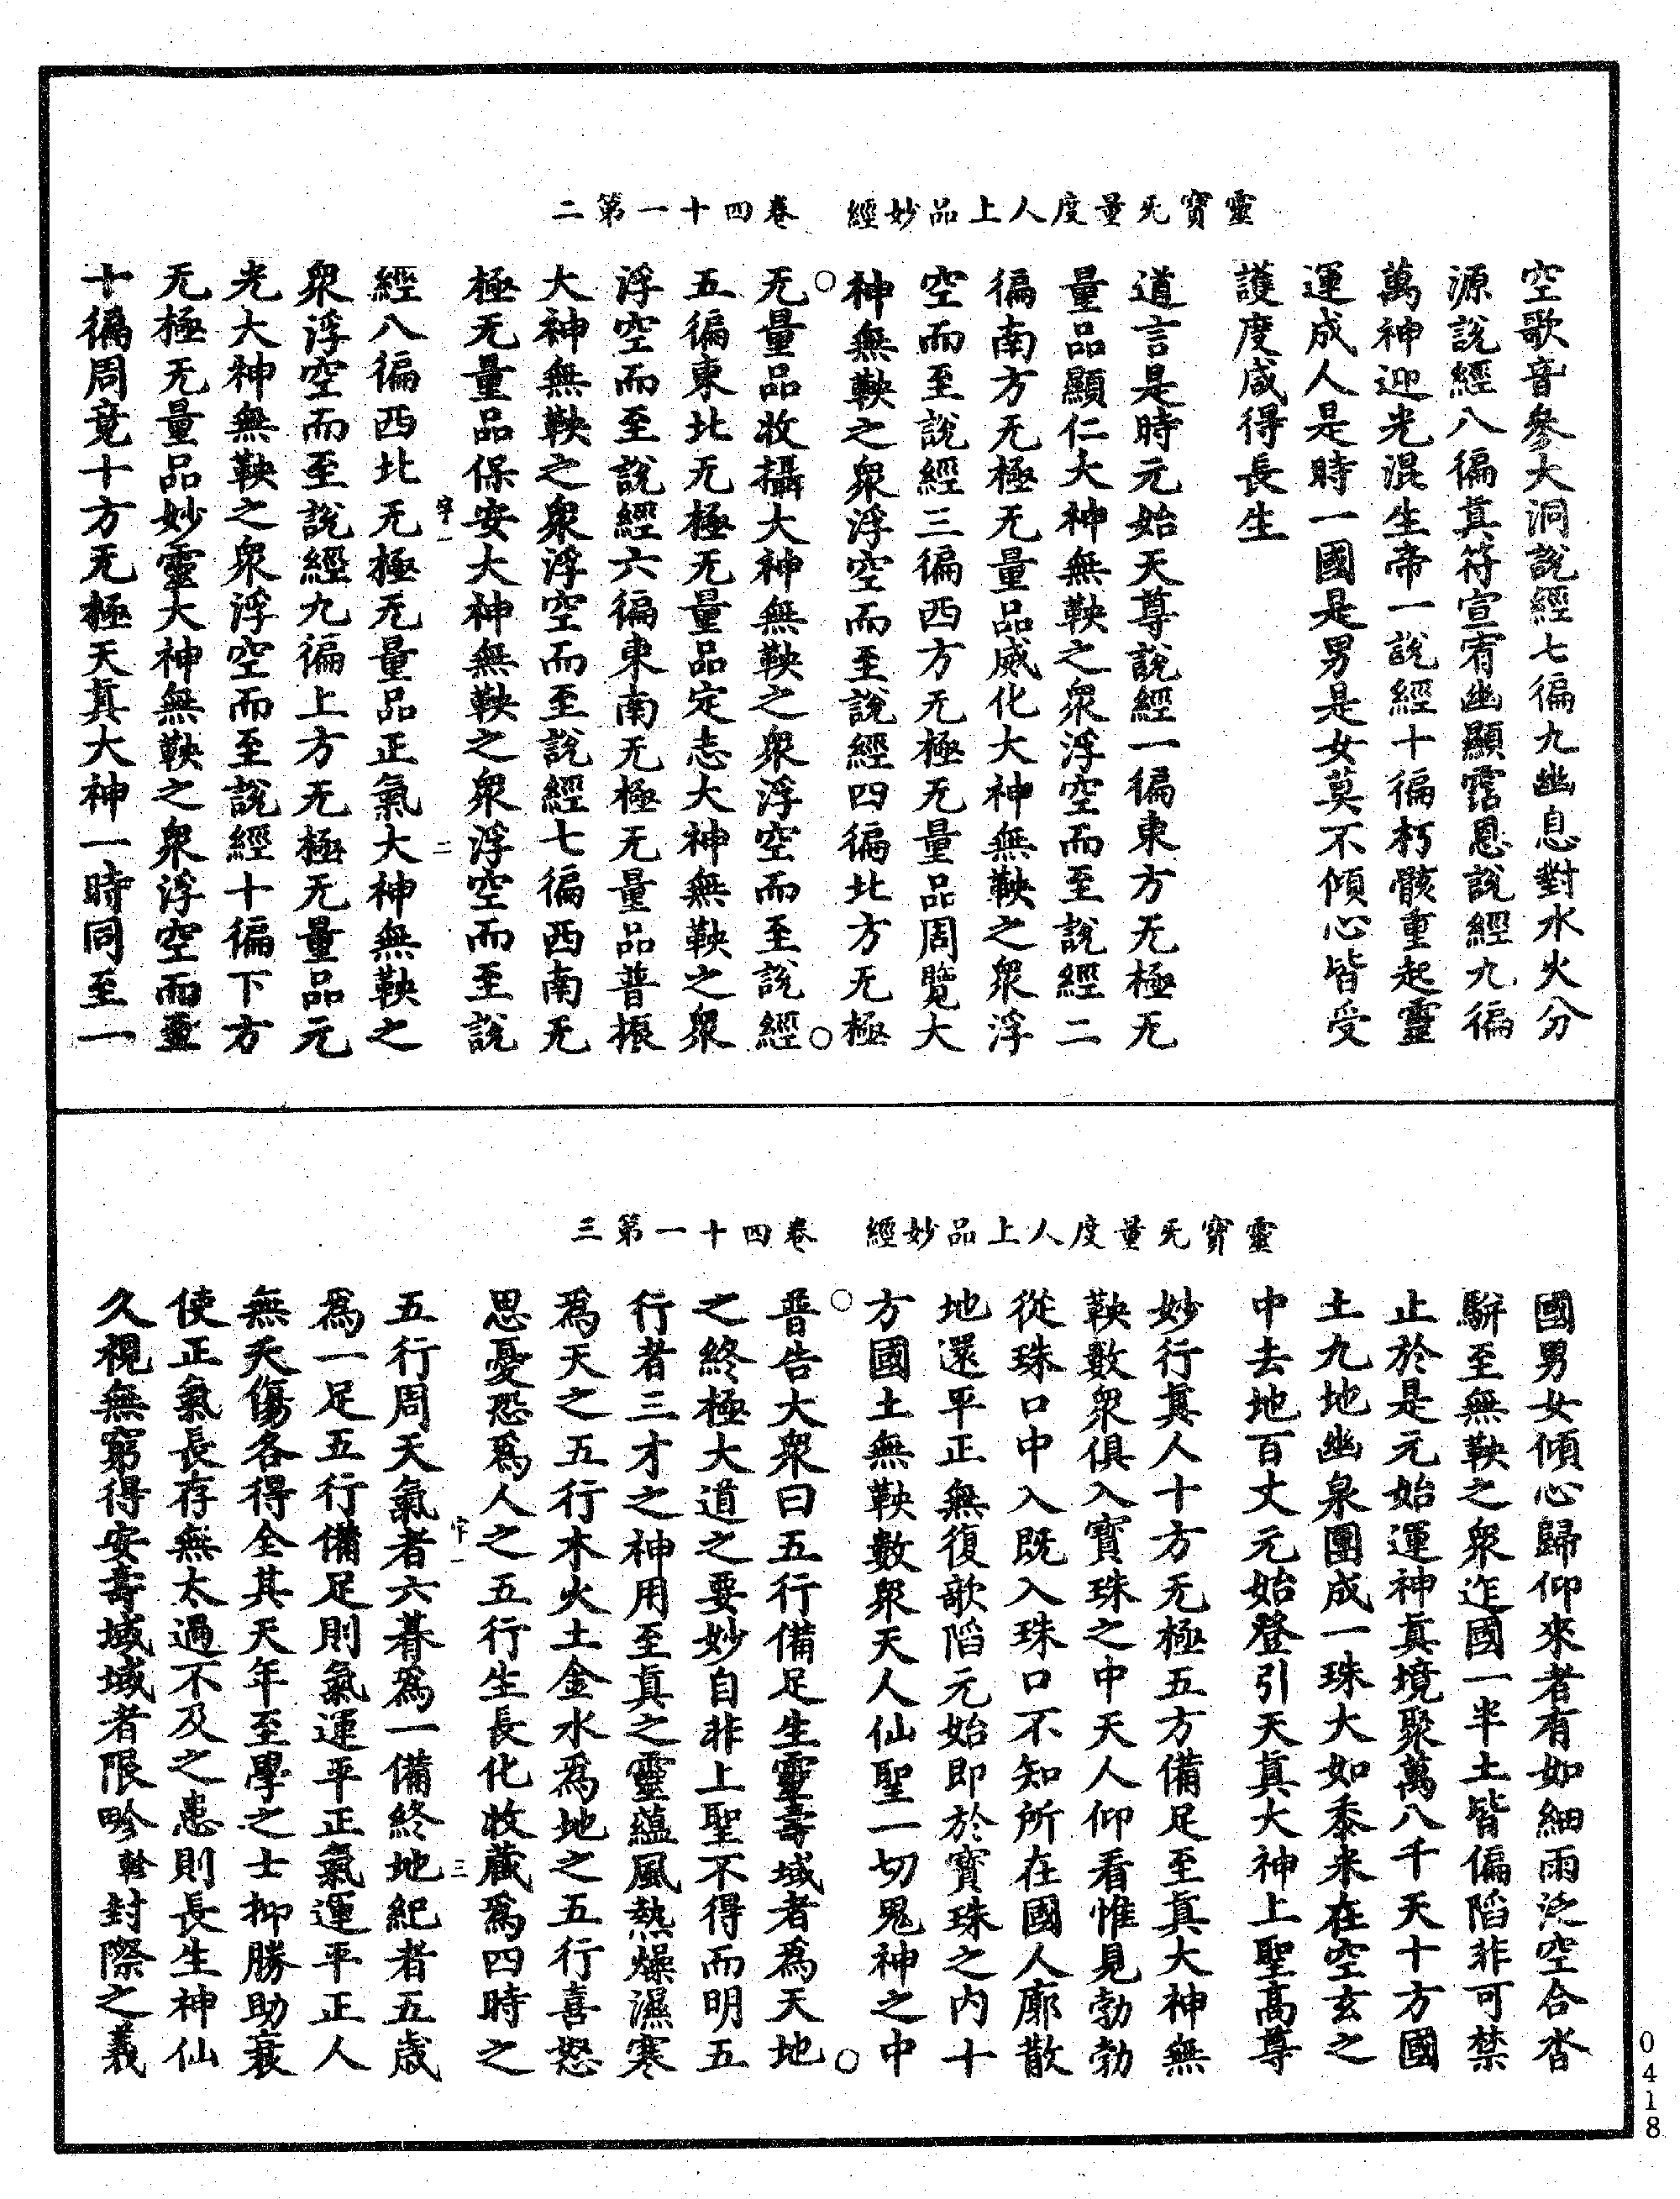 靈寶无量度人上品妙經　卷四十一第二
空歌音參大洞說經七徧九幽息對水火分
源說經八徧真符宣宥幽顯霑恩說經九徧
萬神迎光混生帝一說經十徧朽骸重起靈
運成人是時一國是男是女莫不傾心皆受
護度咸得長生
道言是時元始天尊說經一徧東方无極无
量品顯仁大神無鞅之衆浮空而至說經二
徧南方无極无量品威化大神無鞅之衆浮
空而至說經三徧西方无極无量品周覽大
神無鞅之衆浮空而至說經四徧北方无極
无量品收攝大神無鞅之衆浮空而至說經
五徧東北无極无量品定志大神無鞅之衆
浮空而至說經六徧東南无極无量品普振
大神無鞅之衆浮空而至說經七徧西南无
極无量品保安大神無鞅之衆浮空而至說
二
經八徧西北无極无量品正氣大神無鞅之
衆浮空而至說經九徧上方无極无量品元
光大神無鞅之衆浮空而至說經十徧下方
无極无量品妙靈大神無鞅之衆浮空而至
十徧周竟十方无極天真大神一時同至一
靈寶无量度人上品妙經　卷四十一第三
國男女傾心歸仰來者有如細雨泛空合沓
駢至無鞅之衆迮國一半土皆偏陷非可禁
止於是元始運神真境聚萬八千天十方國
土九地幽泉團成一珠大如黍米在空玄之
中去地百丈元始登引天真大神上聖高尊
妙行真人十方无極五方備足至真大神無
鞅數衆俱入寶珠之中天人仰看惟見勃勃
從珠口中入既入珠口不知所在國人廓散
地還平正無復欹陷元始即於寶珠之內十
方國土無鞅數衆天人仙聖一切鬼神之中
普告大衆曰五行備足生靈壽域者為天地
之終極大道之要妙自非上聖不得而明五
行者三才之神用至真之靈蘊風熱燥濕寒
為天之五行木火土金水為地之五行喜怒
思憂恐為人之五行生長化收藏為四時之
三
五行周天氣者六朞為一備終地紀者五歲
為一足五行備足則氣運平正氣運平正人
無夭傷各得全其天年至學之士抑勝助衰
使正氣長存無太過不及之患則長生神仙
久視無窮得安壽域域者限畛封際之義
0418